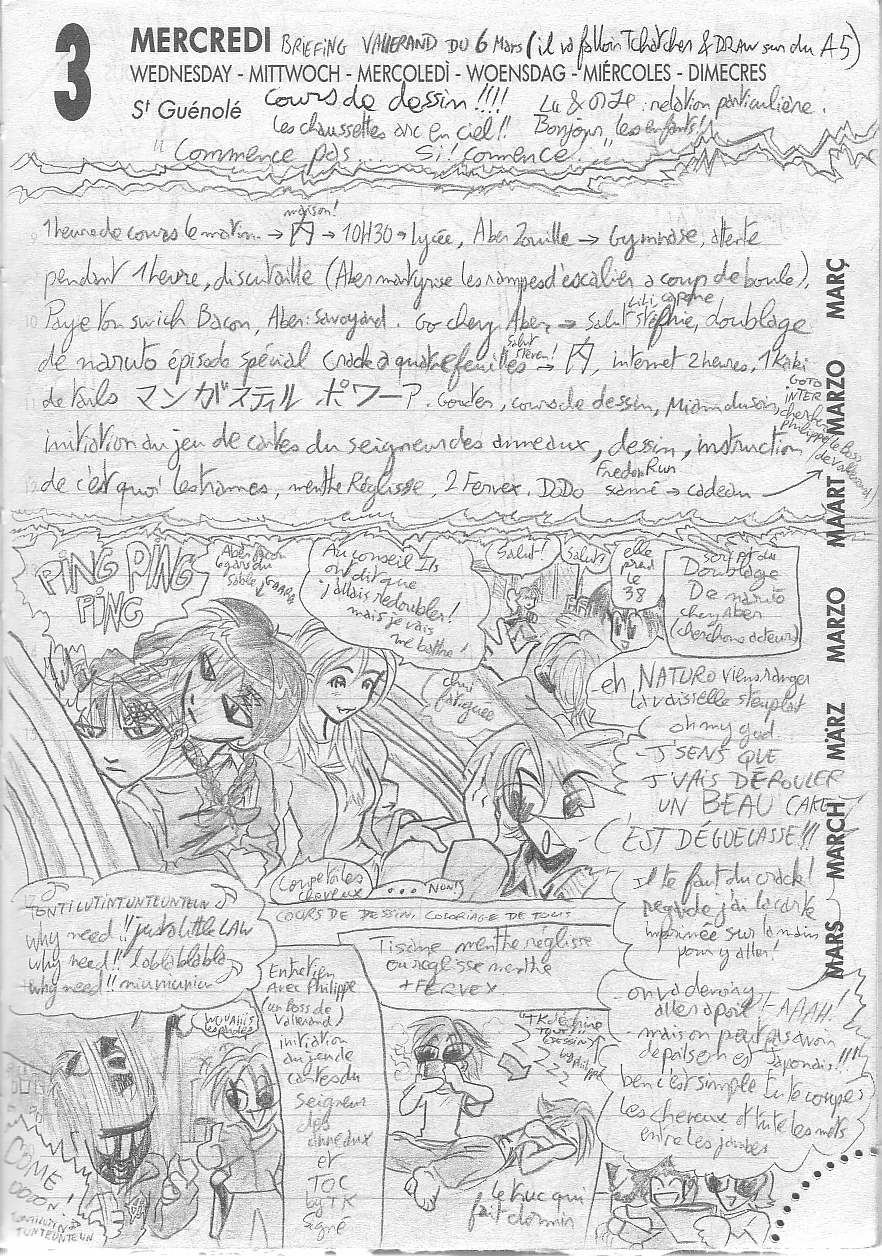 3
MERCREDI BRIEFING VALLERAND DU 6 Mars (il va falloir Tchatcher & DRAW sur du A5)
WEDNESDAY - MITTWOCH - MERCOLEDÌ - WOENSDAG - MIÉRCOLES - DIMECRES
St Guénolé cours de dessin !!!! relation particulière.
les chaussettes arc en ciel !! Bonjour les enfants!
" Commence pas... Si! Commence... "
maison!
1 heure de cours le matin → 内 → 10H30 → lycée, Aber Zouille → Gymnase, attente
pendant 1 heure, discutaille (Aber martyrise les rampes d'escalier a coup de boule),
Lili capone
Paye ton swich Bacon, Aber: Savoyard. Go chez Aber → Salut stéphie, doublage
salut steven!
de naruto épisode spécial crack a quatre feuilles → 内, internet 2 heures, 1 Kaki
GOTO INTER chercher Philippe le Boss de Vallerand)
de tails マンガスティル ポワーア. Gouter, cours de dessin, Miam du soir,
initiation au jeu de cartes du seigneur des anneaux, dessin, instruction
Fredon Run
de c'est quoi les trames, menthe Réglisse, 2 Fervex. DoDo samé → cadeau
MARS MARCH MÄRZ MARZO MAART MARZO MARÇ
PING PING PING
Aber Bacon le gars du sable GAARA
Au conseil Ils
on dit que
j'allais redoubler!
mais je vais
me battre!
Salut!
Salut
elle
prend
le
38
script du
Doublage
De naruto
chez Aber
(cherchons acteurs)
chui
fatiguée
-eh, NATURO viens ranger
la vaisselle steuplait
oh my god...
- J'SENS QUE
J'VAIS DEROULER
UN BEAU CAKE
C'EST DÉGUELASSE!!!
Coupe toi les
cheveux
... NON!
TONTILUTINTUNTEUNTEUN
why need !! just a little LAW
why need !! lablablabla
why need !! miumiumiu
COURS DE DESSIN, COLORIAGE DE TOUS
Tisane menthe réglisse
ou réglisse menthe
+ FERVEX
Il te faut du crack!
regarde j'ai la carte
imprimée sur la main
pour y aller!
Entretien
Avec Philippe
(un Boss de
Vallerand)
initiation
au jeu de
cartes du
seigneur
des
anneaux
et
TOC
by TK
signé
- on va devoir y
aller a poil! - AAAH!
- mais on peut pas avoir
de poils on est Japonais!!!!
ben c'est simple tu te coupes
les cheveux et tu te les mets
entre les jambes
le truc qui
fait dormir
TONTILUTIN
TUNTEUNTEUN